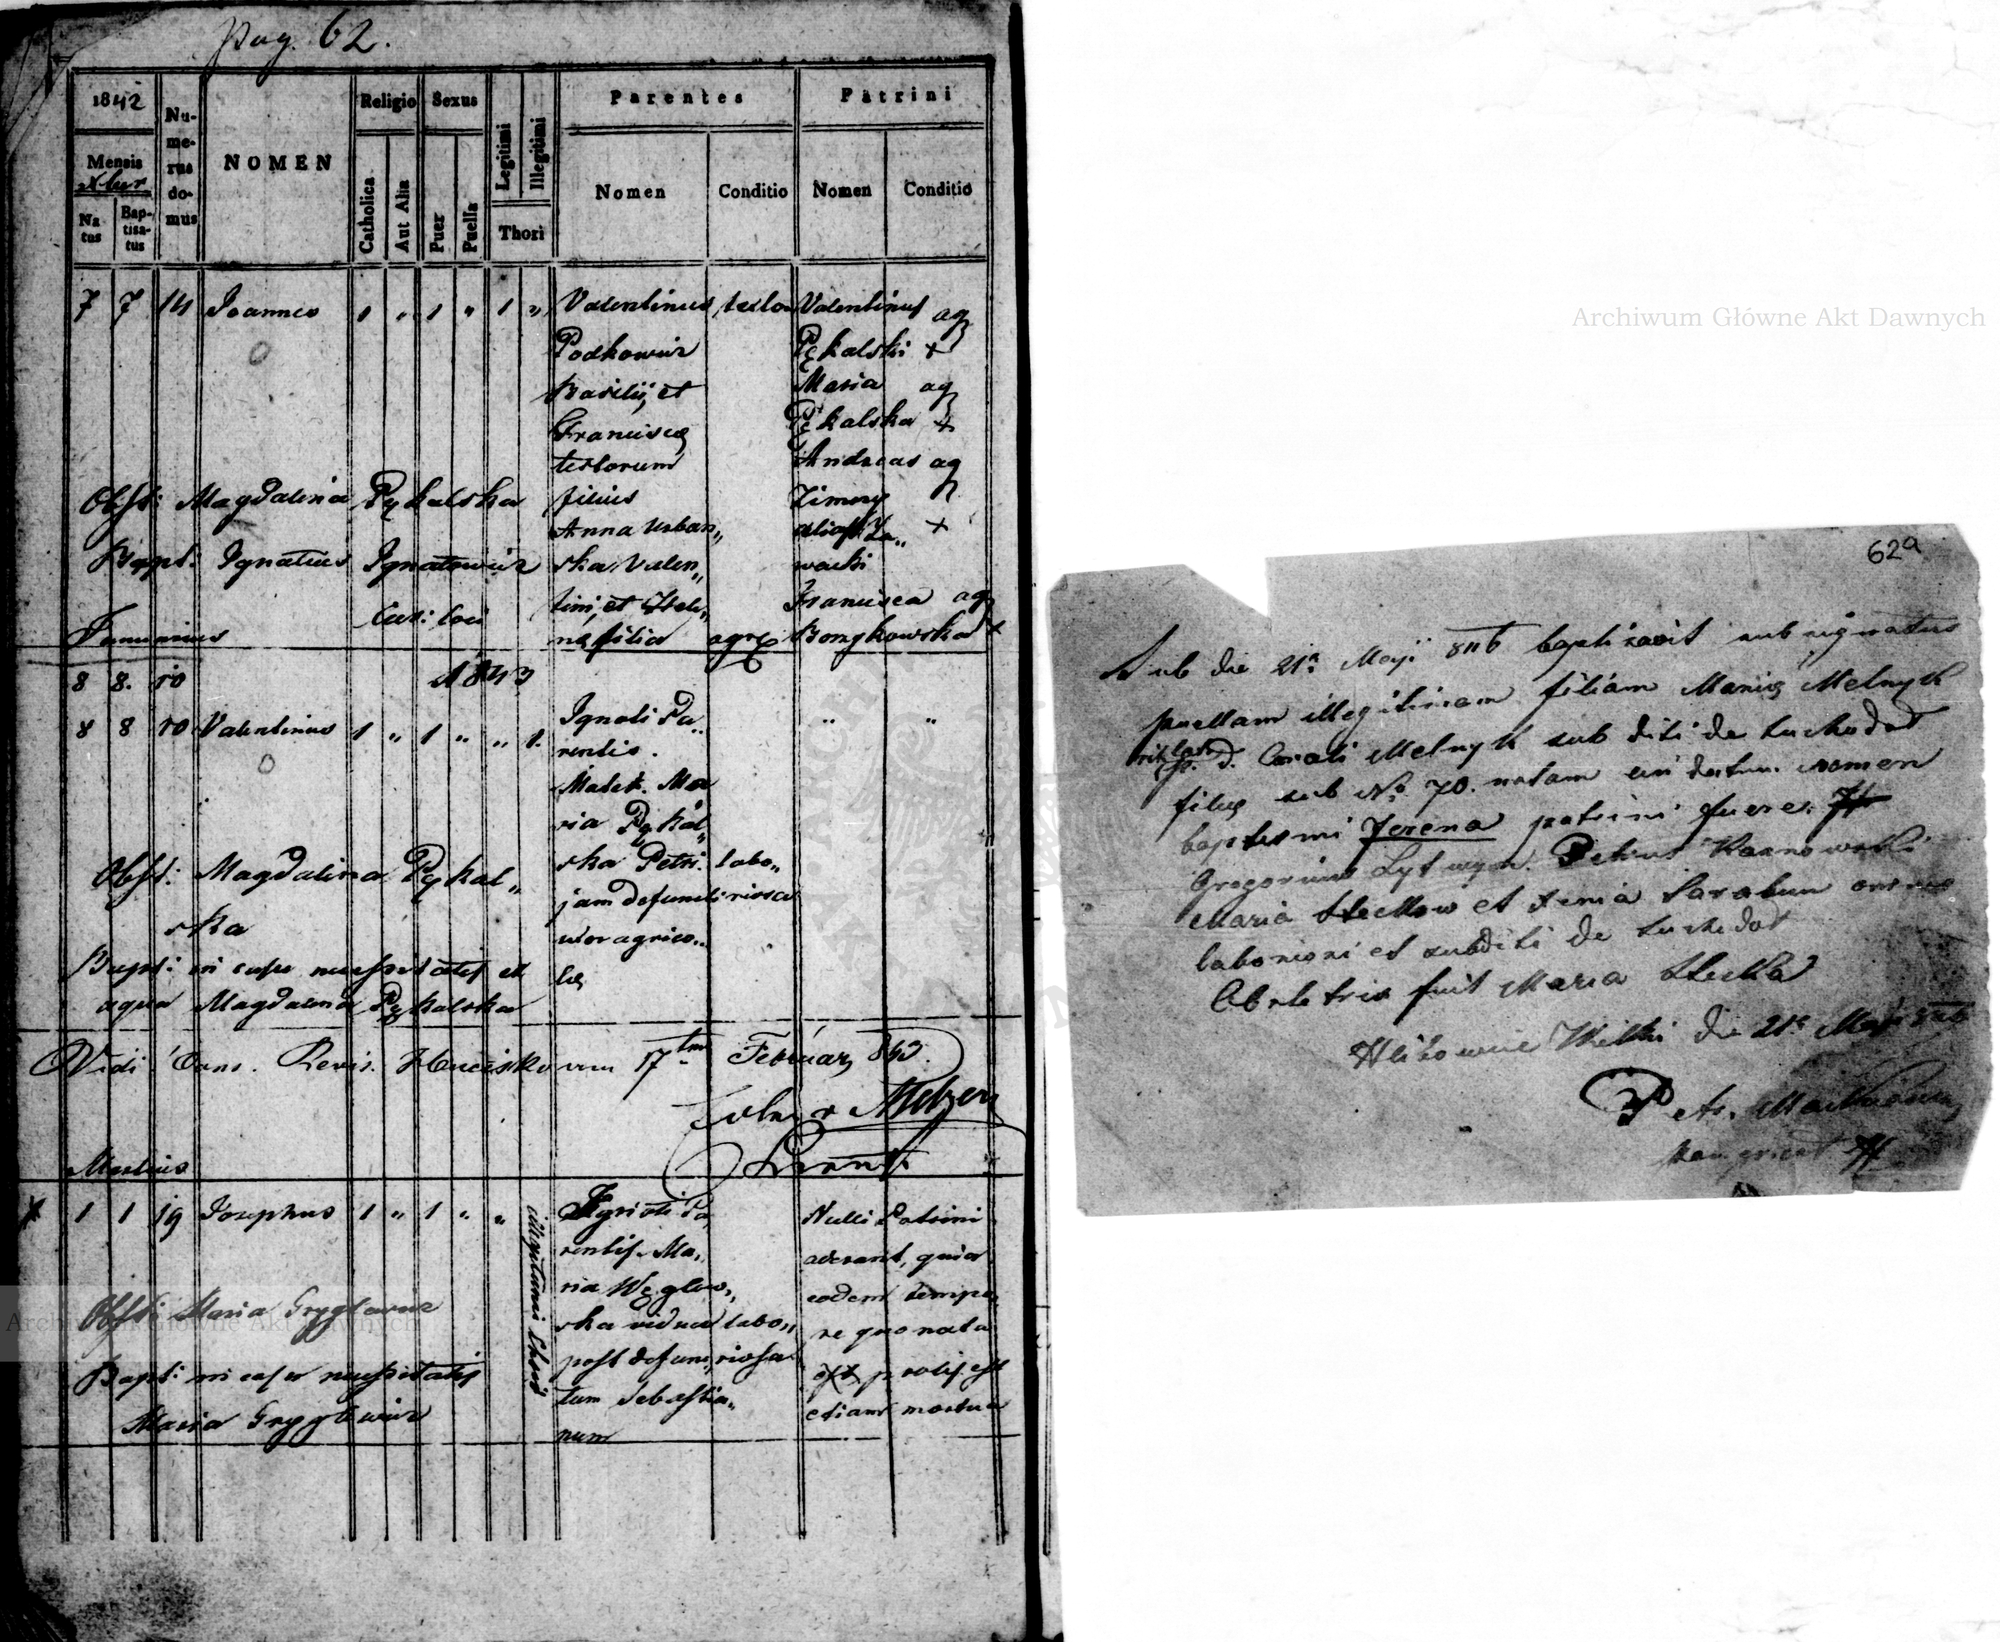 pag. 62.
1842
Mensis
Xbris
Natus
Baptisatus
Numerus domus
NOMEN
Religio
Catholica
Aut Alia
Sexus
Puer
Puella
Legitimi
Illegitimi
Thori
Parentes
Nomen
Conditio
Patrini
Nomen
Conditio
7 7 14 Joannes 1 " 1 " 1 "
Valentinus textor
Podkowicz
Basilij, et
Franciscæ
textorum
filius
Anna Urban„
ska Valen„
tini, et Hele„
næ filia agrx
Valentinus ag
Pękalski +
Maria ag
Pękalska +
Andreas ag
Zimny
alias Za„ +
wacki
Francisca ag
Bomykowska +
Obst: Magdalena Pękalska
Bapt: Ignatius Ignatowicz
Cur: loci
Januarius
1843
8 8. 10
8 8 10 Valentinus 1 " 1 " " 1.
Ignoti Pa„
rentis.
Matek. Ma
ria Pękal„
ska Petri labo„
jam defuncti riosa
uxor agrico„
læ
" "
Obst: Magdalena Pękal„
ska
Bapt: in casu necessitatis et
aqua Magdalena Pękalska
Vidi Cans. Revis. Hucisko 17 tma Februar 843.
Martius
1 1 19 Josephus 1 " 1 " "
illegitimi thori
Ignoti Pa
rentis. Ma„
ria Węglow„
ska vidua labo„
post defunc„ riosa
tum Sebastia„
num
Nulli Patrini
aderant, quia
eodem tempo„
re quo nata
est prolis est
etiam mortua
Obst: Maria Gryglewicz
Bapt: in casu necessitatis
Maria Gryglewicz
62a
Sub die 21a Maji 8116 baptisavit subsignatus
puellam illegitimam filiam Mariæ Melnyk
Melnyk subditi de Suchodoł
filiæ sub No 70. natam cui datum nomen
baptismi Jerena patrini fuere:
Gregorius Lytwyn. Petrus Karnowski
Maria Steckow et Xenia Taraban omnes
laboriosi et subditi de Suchodoł
Obstetrix fuit Maria Stecka
Hlibowicze Wielki die 21a Maji
Archiwum Główne Akt Dawnych
Archiwum Główne Akt Dawnych